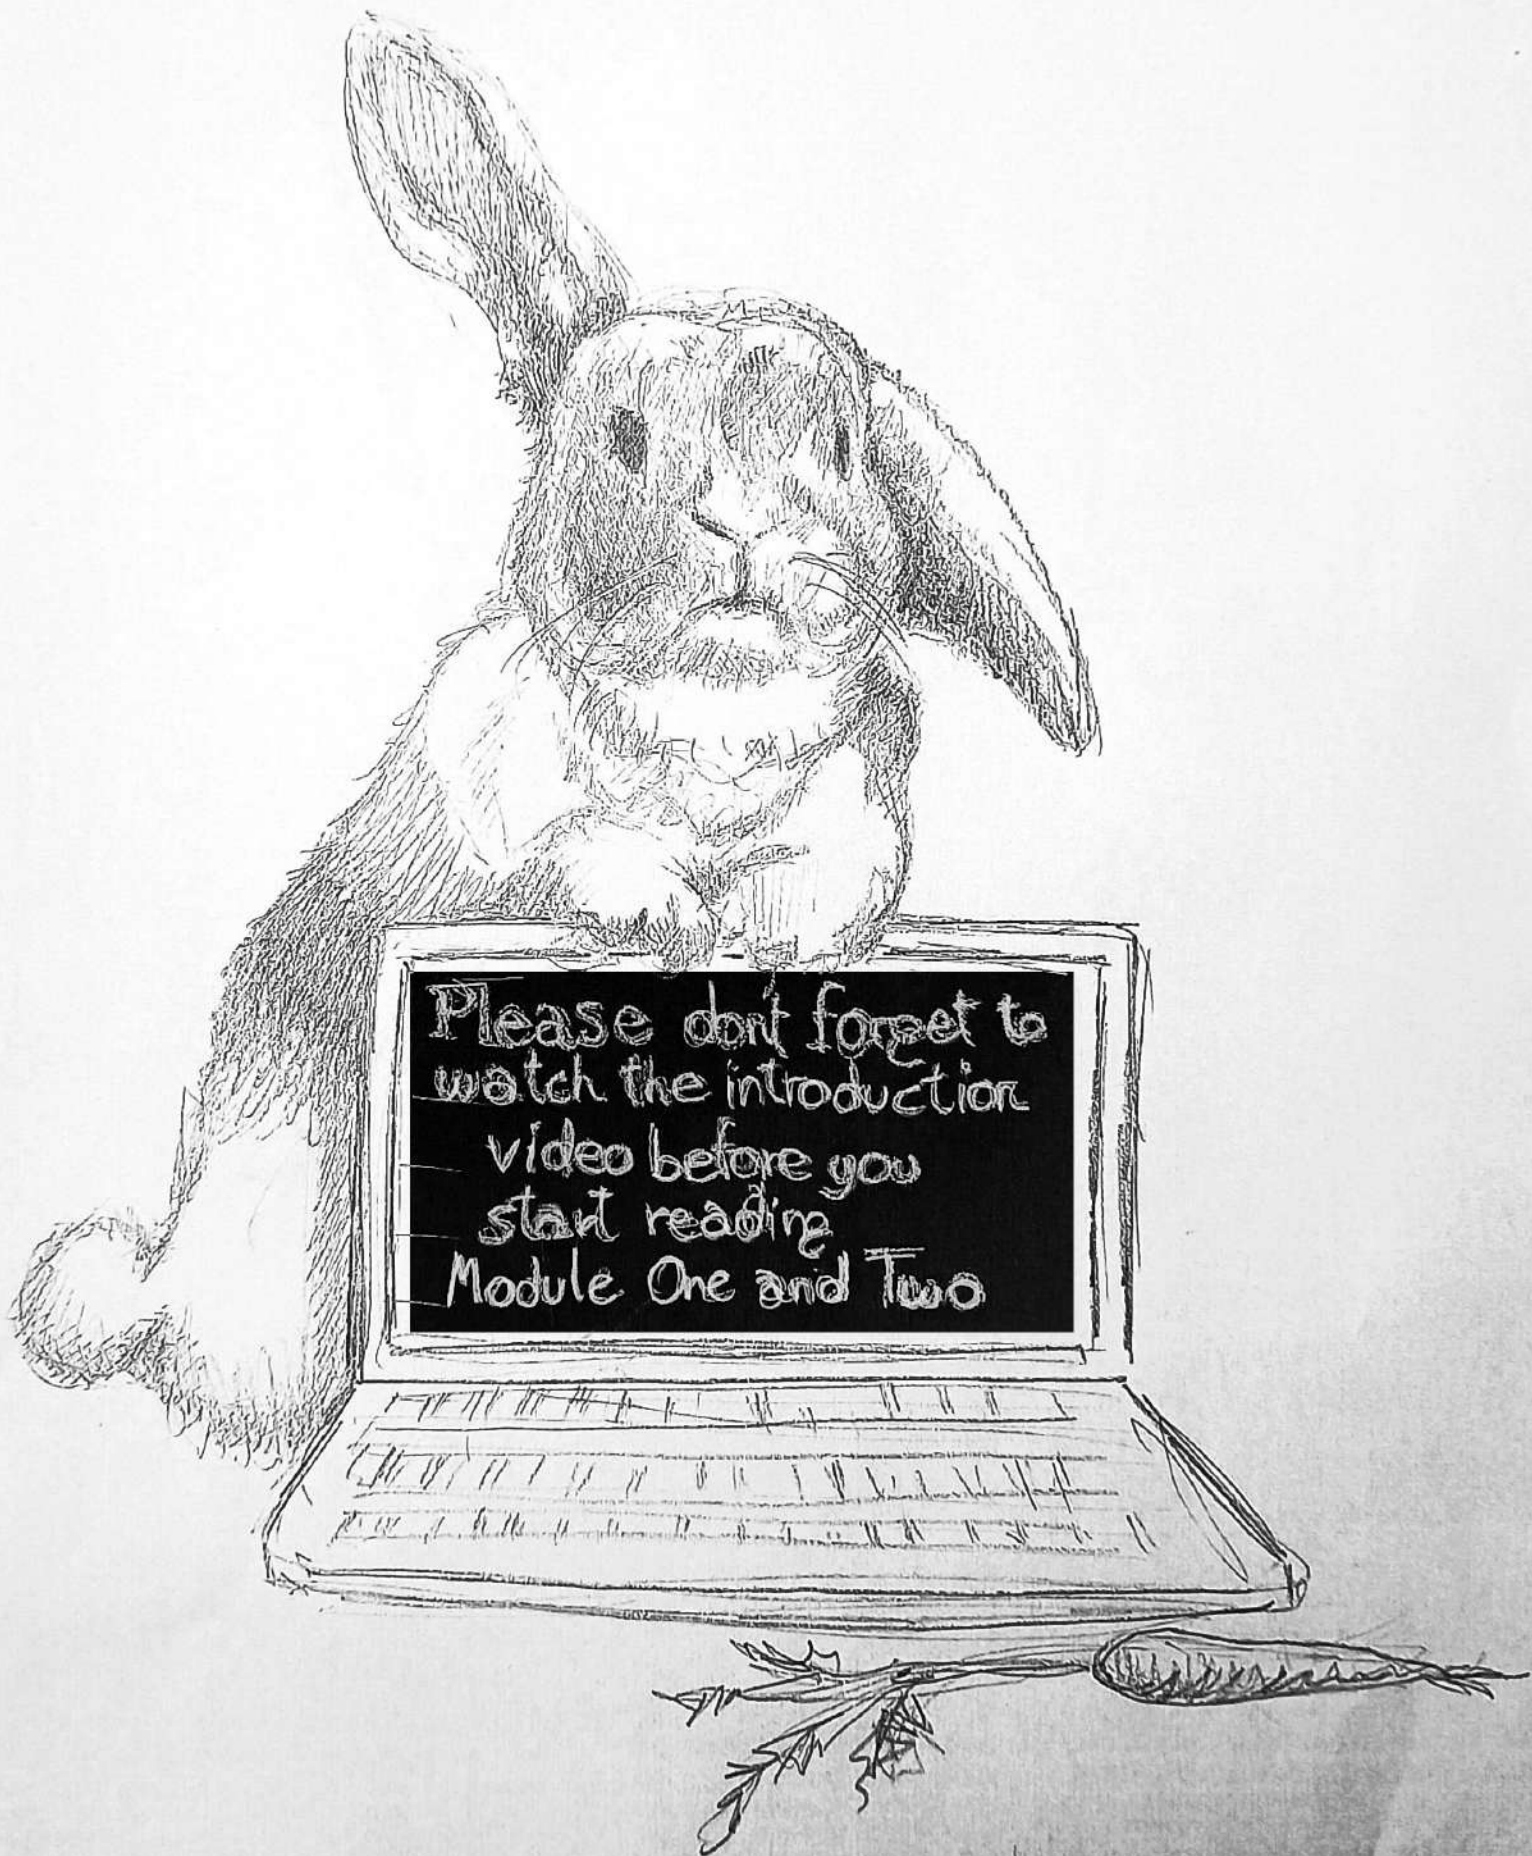 Please don't forget to
watch the introduction
video before you
start reading
Module One and Two